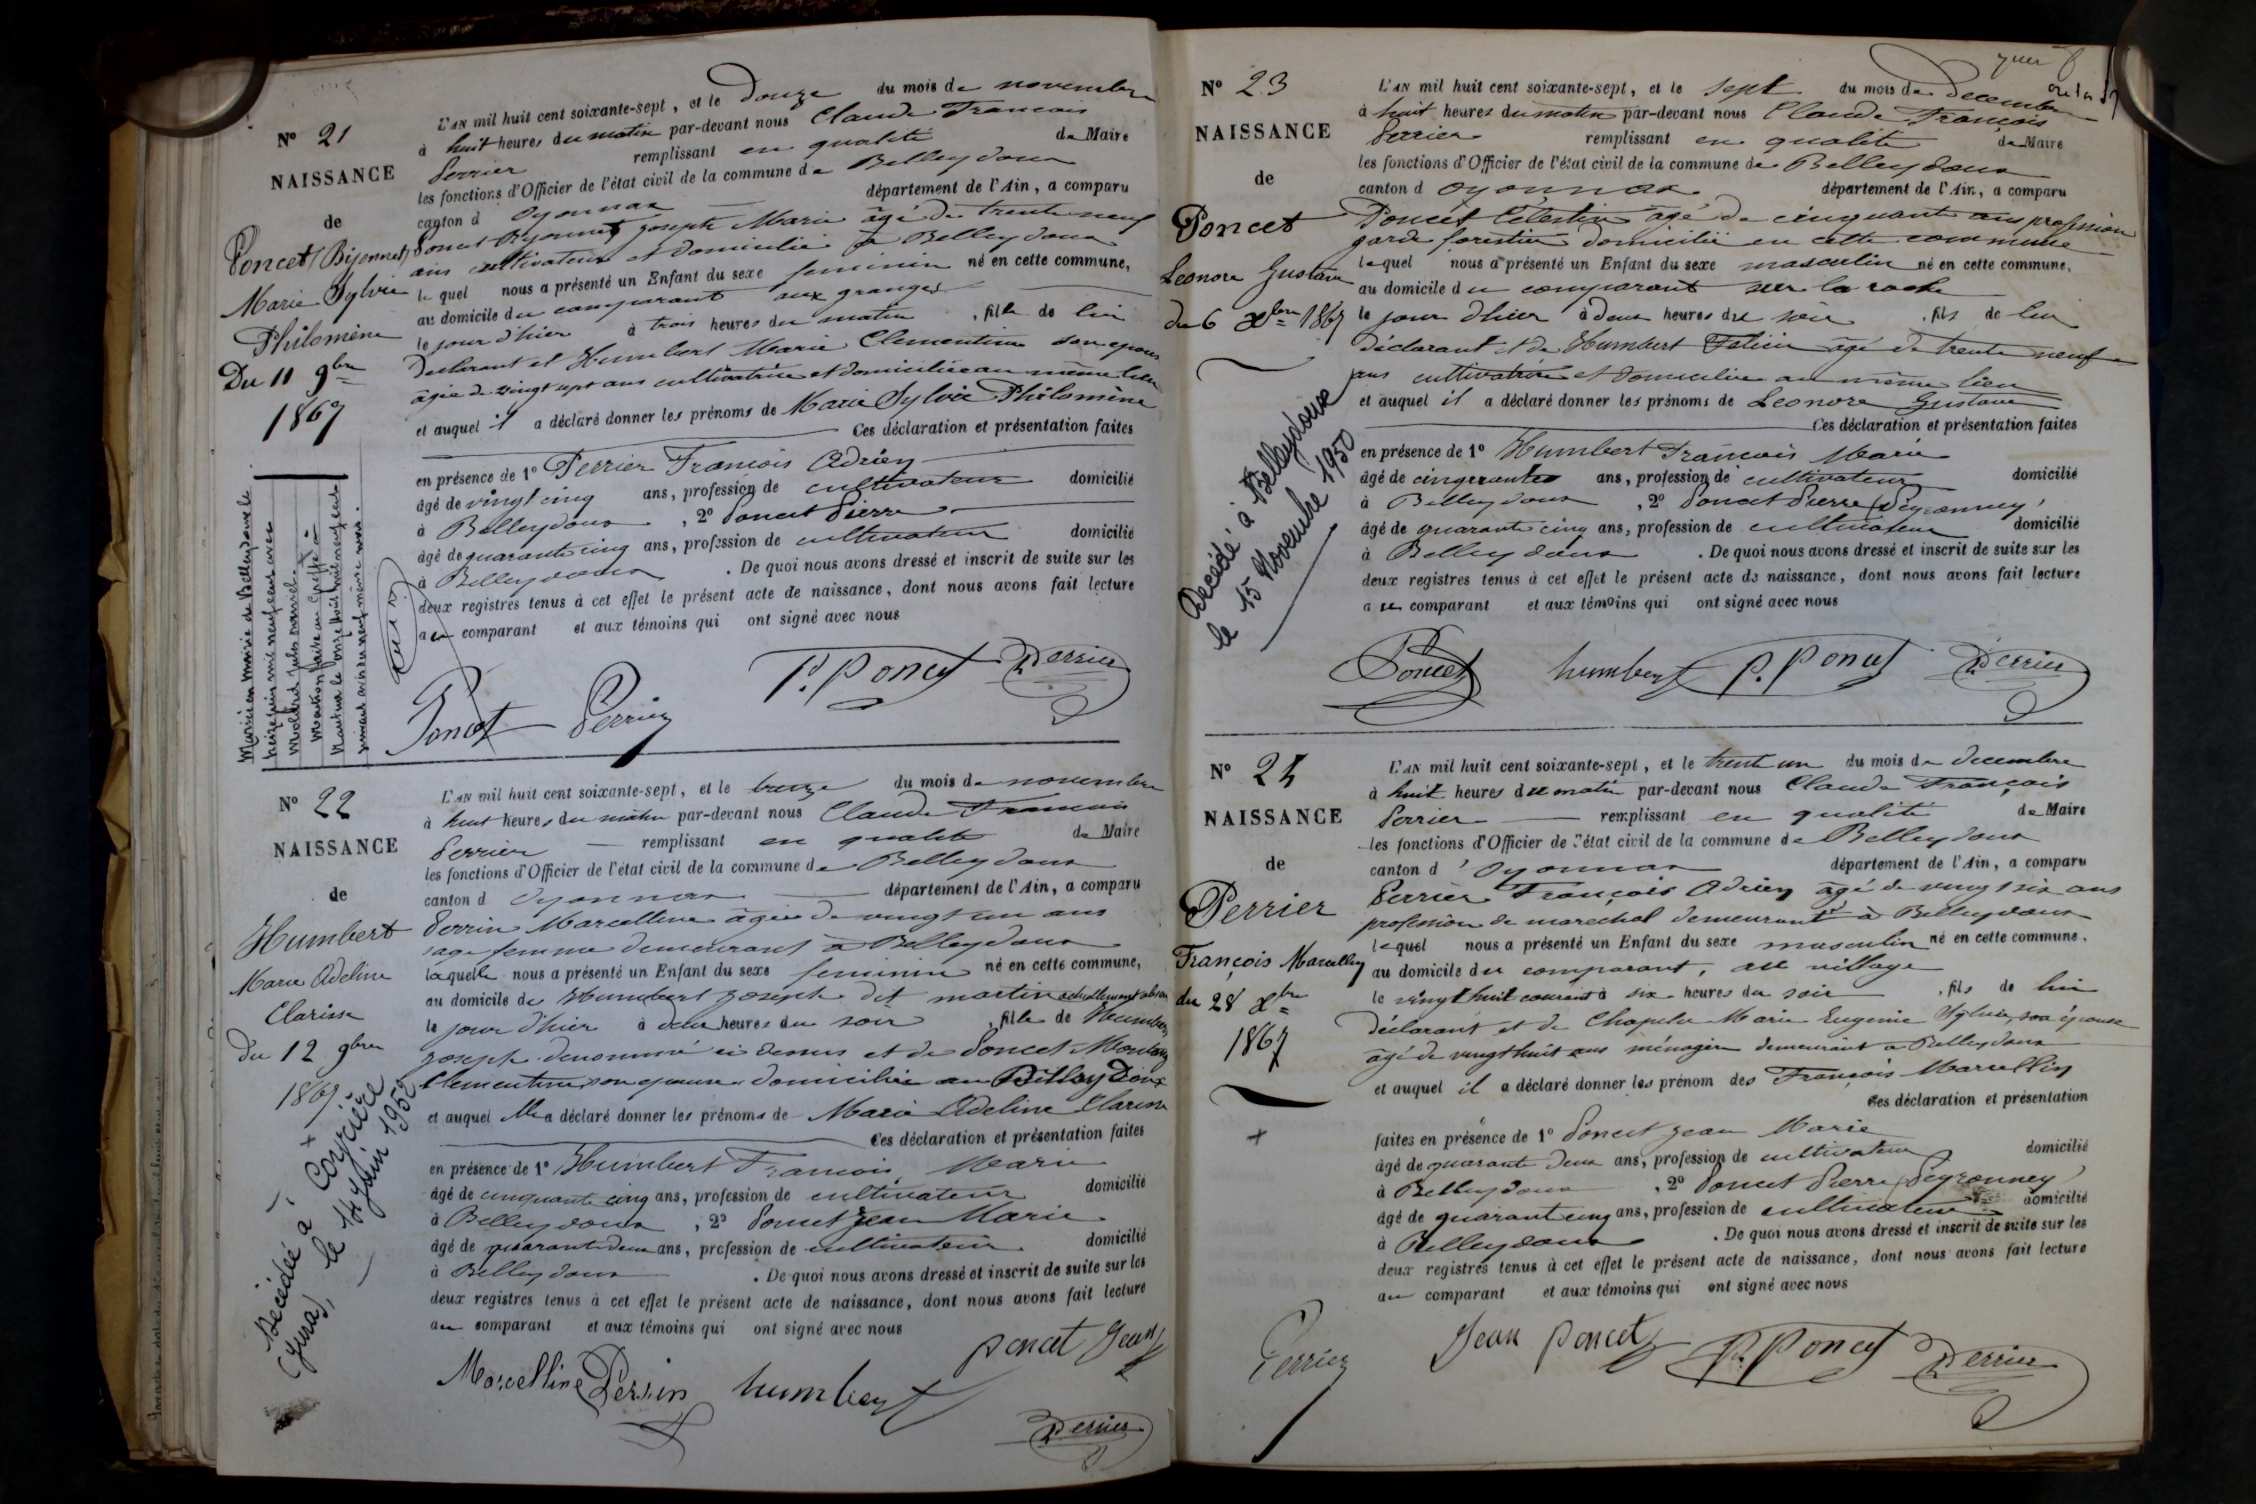 N° 21
NAISSANCE
de
Poncet (Bijonnet)
Marie Sylvie
Philomène
Du 11 9bre
1867
L'AN mil huit cent soixante-sept, et le douze du mois de novembre
à huit heures du matin par-devant nous Claude François
Perrier remplissant en qualité de Maire
les fonctions d'Officier de l'état civil de la commune de Belleydoux
canton d Oyonnax département de l'Ain, a comparu
Poncet Bijonnet Joseph Marie âgé de trente neuf
ans cultivateur et domicilié à Belleydoux
lequel nous a présenté un Enfant du sexe feminin né en cette commune,
au domicile du comparant aux granges
le jour d'hier à trois heures du matin, fille de lui
Declarant et Humbert Marie Clementine son epouse
âgée de vingt sept ans cultivatrice et domiciliée au même lieu
et auquel il a déclaré donner les prénoms de Marie Sylvie Philomène
Ces déclaration et présentation faites
en présence de 1° Perrier François Adrien
âgé de vingt cinq ans, profession de cultivateur domicilié
à Belleydoux, 2° Poncet Pierre
âgé de quarante cinq ans, profession de cultivateur domicilié
à Belleydoux. De quoi nous avons dressé et inscrit de suite sur les
deux registres tenus à cet effet le présent acte de naissance, dont nous avons fait lecture
au comparant et aux témoins qui ont signé avec nous
Poncet Perrier P. Poncet Perrier
Mariée en mairie de Belleydoux le
treize juin mil neuf cent
N° 22
NAISSANCE
de
Humbert
Marie Adeline
Clarisse
Du 12 9bre
1867
Décédée à Coyrière
(Jura), le 14 Juin 1952
L'AN mil huit cent soixante-sept, et le treize du mois de novembre
à huit heures du matin par-devant nous Claude François
Perrier remplissant en qualité de Maire
les fonctions d'Officier de l'état civil de la commune de Belleydoux
canton d Oyonnax département de l'Ain, a comparu
Perrin Marcelline âgée de vingt un ans
sage femme demeurant à Belleydoux
laquelle nous a présenté un Enfant du sexe feminin né en cette commune,
au domicile de Humbert Joseph dit martin actuellement absent
le jour d'hier à deux heures du soir, fille de Humbert
Joseph denommé ci dessus et de Poncet
Clementine son epouse domiciliée au Belleydoux
et auquel Elle a déclaré donner les prénoms de Marie Adeline Clarisse
Ces déclaration et présentation faites
en présence de 1° Humbert François Marie
âgé de cinquante cinq ans, profession de cultivateur domicilié
à Belleydoux, 2° Poncet Jean Marie
âgé de quarante deux ans, profession de cultivateur domicilié
à Belleydoux. De quoi nous avons dressé et inscrit de suite sur les
deux registres tenus à cet effet le présent acte de naissance, dont nous avons fait lecture
au comparant et aux témoins qui ont signé avec nous
Marcelline Perrin humbert poncet Jean
Perrier
N° 23
NAISSANCE
de
Poncet
Leonore Gustave
du 6 Xbre 1867
Décédé à Belleydoux
le 15 Novembre 1950
L'AN mil huit cent soixante-sept, et le sept du mois de Decembre
à huit heures du matin par-devant nous Claude François
Perrier remplissant en qualité de Maire
les fonctions d'Officier de l'état civil de la commune de Belleydoux
canton d Oyonnax département de l'Ain, a comparu
Poncet Célestin âgé de cinquante ans profession
garde forestier domicilié en cette commune
lequel nous a présenté un Enfant du sexe masculin né en cette commune,
au domicile du comparant sur la roche
le jour d'hier à deux heures du soir, fils de lui
déclarant et de Humbert Felicie âgé de trente neuf
ans cultivatrice et domiciliée au même lieu
et auquel il a déclaré donner les prénoms de Leonore Gustave
Ces déclaration et présentation faites
en présence de 1° Humbert François Marie
âgé de cinquante ans, profession de cultivateur domicilié
à Belleydoux, 2° Poncet Pierre (Peyronney)
âgé de quarante cinq ans, profession de cultivateur domicilié
à Belleydoux. De quoi nous avons dressé et inscrit de suite sur les
deux registres tenus à cet effet le présent acte de naissance, dont nous avons fait lecture
au comparant et aux témoins qui ont signé avec nous
Poncet humbert P. Poncet Perrier
N° 24
NAISSANCE
de
Perrier
François Marcellin
du 28 Xbre
1867
L'AN mil huit cent soixante-sept, et le trente un du mois de decembre
à huit heures du matin par-devant nous Claude François
Perrier remplissant en qualité de Maire
les fonctions d'Officier de l'état civil de la commune de Belleydoux
canton d'Oyonnax département de l'Ain, a comparu
Perrier François Adrien âgé de vingt six ans
profession de marechal demeurant à Belleydoux
lequel nous a présenté un Enfant du sexe masculin né en cette commune.
au domicile du comparant, au village
le vingt huit courant à six heures du soir, fils de lui
déclarant et de Chapelu Marie Eugenie Sylvie, son épouse
âgé de vingt huit ans ménagère demeurant a Belleydoux
et auquel il a déclaré donner les prénom des François Marcellin
Ces déclaration et présentation
faites en présence de 1° Poncet Jean Marie
âgé de quarante deux ans, profession de cultivateur domicilié
à Belleydoux, 2° Poncet Pierre (Peyronney)
âgé de quarante cinq ans, profession de cultivateur domicilié
à Belleydoux. De quoi nous avons dressé et inscrit de suite sur les
deux registres tenus à cet effet le présent acte de naissance, dont nous avons fait lecture
au comparant et aux témoins qui ont signé avec nous
Perrier Jean poncet P. Poncet Perrier